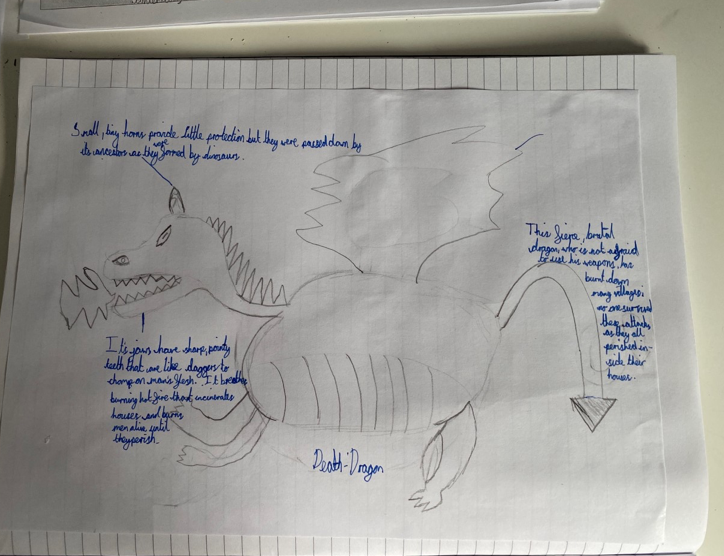 Small, tiny horns provide little protection but they were passed down by
its ancestors as they were formed by dinosaurs.
This fierce, brutal
dragon, who is not afraid
to use his weapons, has
burnt down
many villages;
no one survived
these attacks
as they all
perished in-
side their
houses.
It's jaws have sharp, pointy
teeth that are like daggers to
chomp on man's flesh. It breaths
burning hot fire that incinerates
houses and burns
men alive until
they perish.
Death-Dragon